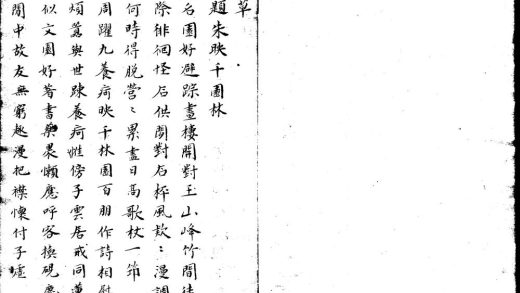 草
題朱映千園林
名園好避踪畫棲閒對玉山峰竹間
際徘徊怪石供閒對石枰風欵〻漫調
何時得脱營〻累盡日高歌杖一笻
周躍九養疴映千林園百朋作詩相
煩囂與世踈養疴惟傍子雲居戒同
似文園好著書藥裹懶應呼客換硯
閒中故友無窮趣漫把襟懷付子墟